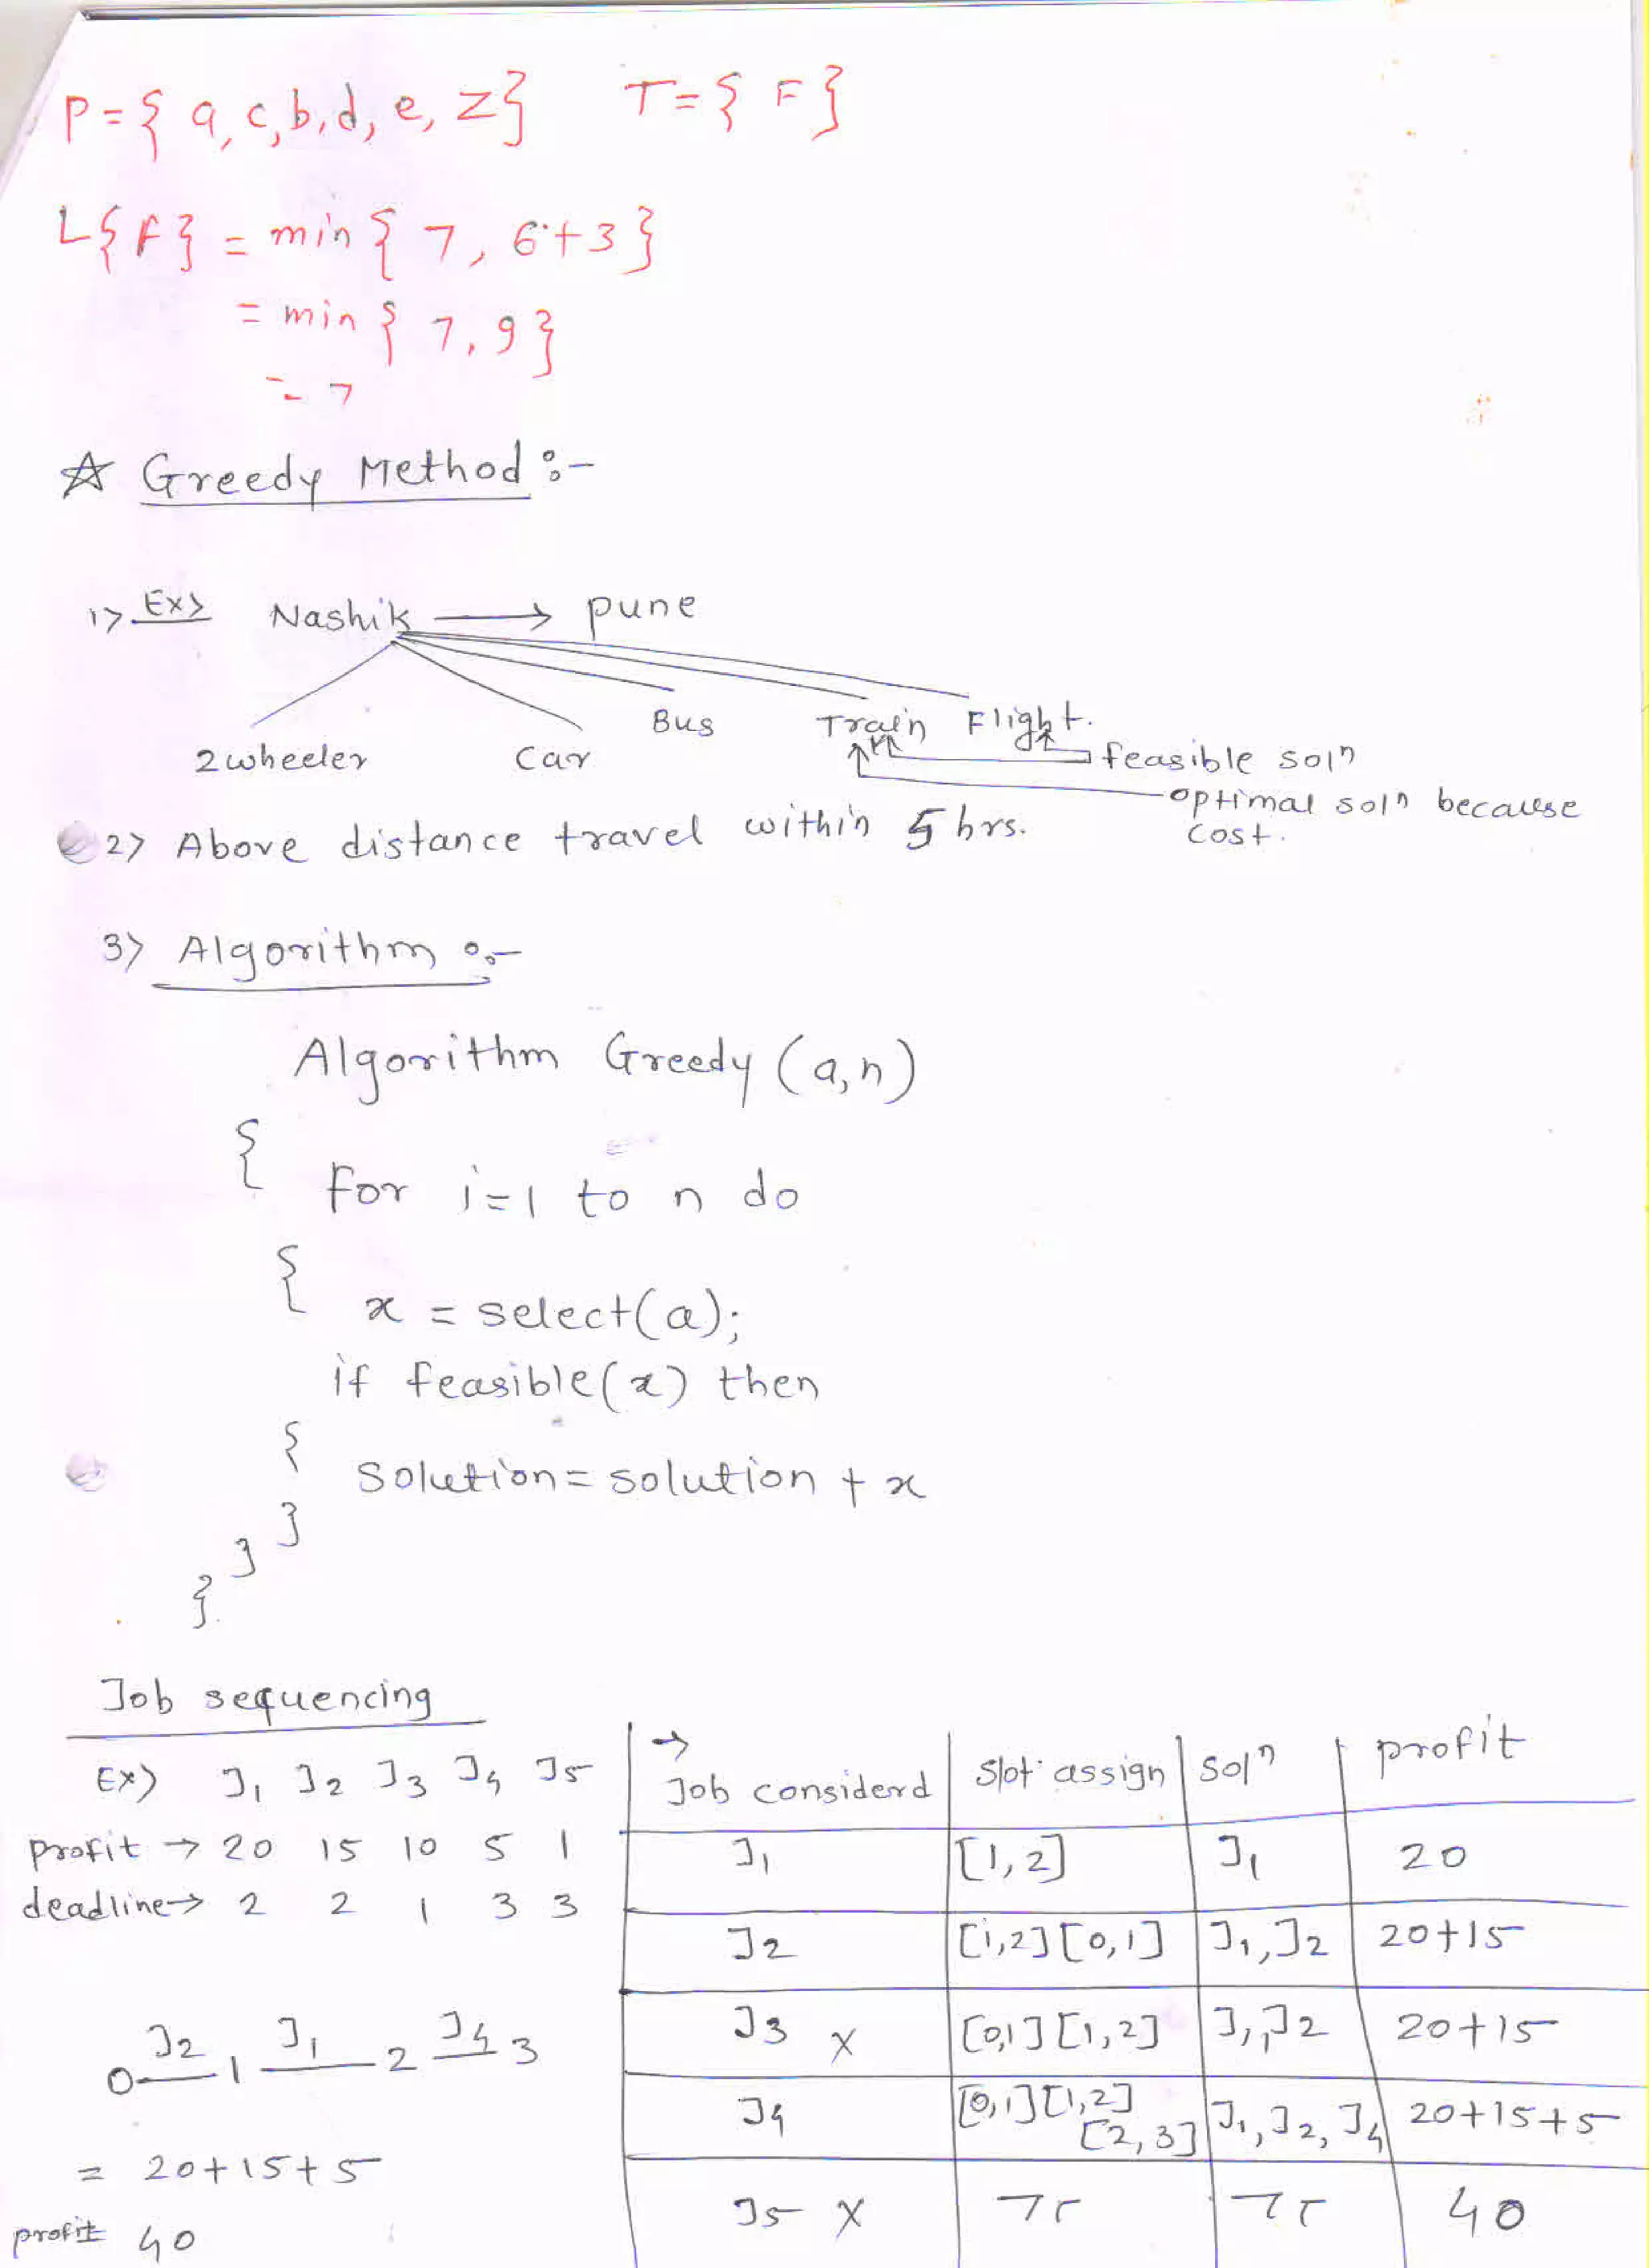 P={a,c,b,d,e,z} T={F}
L{F} = min{7, 6+3}
= min{7,9}
= 7
☆ Greedy Method :-
1> Ex> Nashik → pune
2wheeler Car Bus Train Flight.
feasible solⁿ
optimal solⁿ because
cost.
2> Above distance travel within 5 hrs.
3> Algorithm :-
Algorithm Greedy (a,n)
{
for i=1 to n do
{
x = select(a);
if feasible(x) then
{
Solution = solution + x
}
}
}
Job sequencing
Ex) J1 J2 J3 J4 J5
profit → 20 15 10 5 1
deadline → 2 2 1 3 3
0 J2 1 J1 2 J4 3
= 20+15+5
profit 40
→
Job considerd slot assign solⁿ profit
J1 [1,2] J1 20
J2 [1,2][0,1] J1,J2 20+15
J3 x [0,1][1,2] J1,J2 20+15
J4 [0,1][1,2] [2,3] J1,J2,J4 20+15+5
J5 x 40